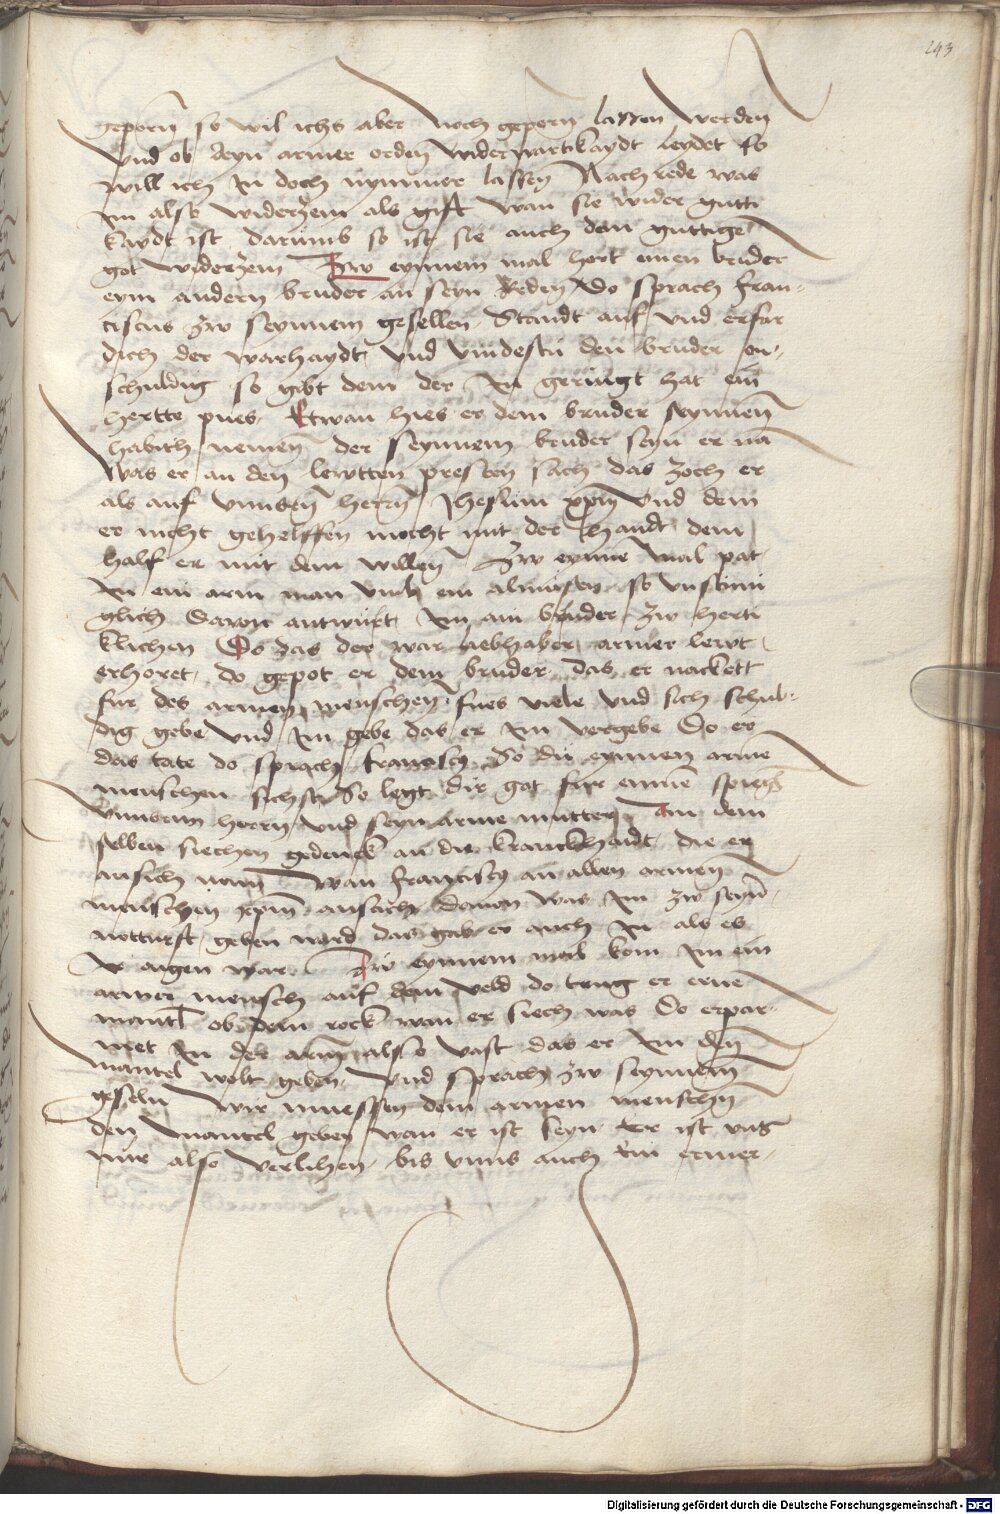 243
geporn so wil ichs aber noch gepern lassen werden
Und ob deyn armer orden widerwartikaydt leydet so
will ich in doch nymmer lassen Nachrede was
im also widerzem als gift wan sie wider gutti
kaydt ist darumb so ist sie auch dem guttigen
got widerzem Zw eynnem mal hort einen bruder
eym andern bruder an seyn Reden Do sprach fran-
ciscus zw seynnem gesellen Standt auf und erfar
dich der warhaydt und vindestu den bruder on-
schuldig so gibt dem der in geringt hat ein
hertte pues Etwan hies er dem bruder seynnen
habith nemen der seynnem bruder seyn er na
Was er an den lewtten presten sach das zoch er
als auf unnsern herrn Jhesum xpm Und dem
er nicht gehelffen mocht mit der handt dem
half er mit dem willen Zw eynne mal pat
in ein arm man umb ein almusen so unstimi
glich Davon antwurt im ain bruder zw herti
klichen Do das der war liebhaber armer lewt
erhoret do gepot er dem bruder das er nackett
fur des armen menschen fues viele und sich schul-
dig gebe und im gebe das er im vergebe Do er
das tate do sprach franciscus So du eynnen arme
menschen sichst So legt dir got fur ein spiegl
Unnserm herrn und seyn arme mutter An dem
selben siechen gedenck an die kranckhaidt die er
ansich nam Wan franciscus an allen armen
menschen xpm ansach davon was im zw seyner
notturft geben ward das gab er auch in als es
ir aigen war Zw eynnem mal kom im ein
armer mensch auf dem veld do trug er eine
mantl ob dem rock wan er siech was Do erpar-
met in der arm also vast das er im den
mantel wolt geben und sprach zw seynnem
geseln Wir muessen dem armen menschen
den mantel geben wan er ist seyn er ist uns
nur also verlihen bis unns auch ein ermer
Digitalisierung gefördert durch die Deutsche Forschungsgemeinschaft - DFG